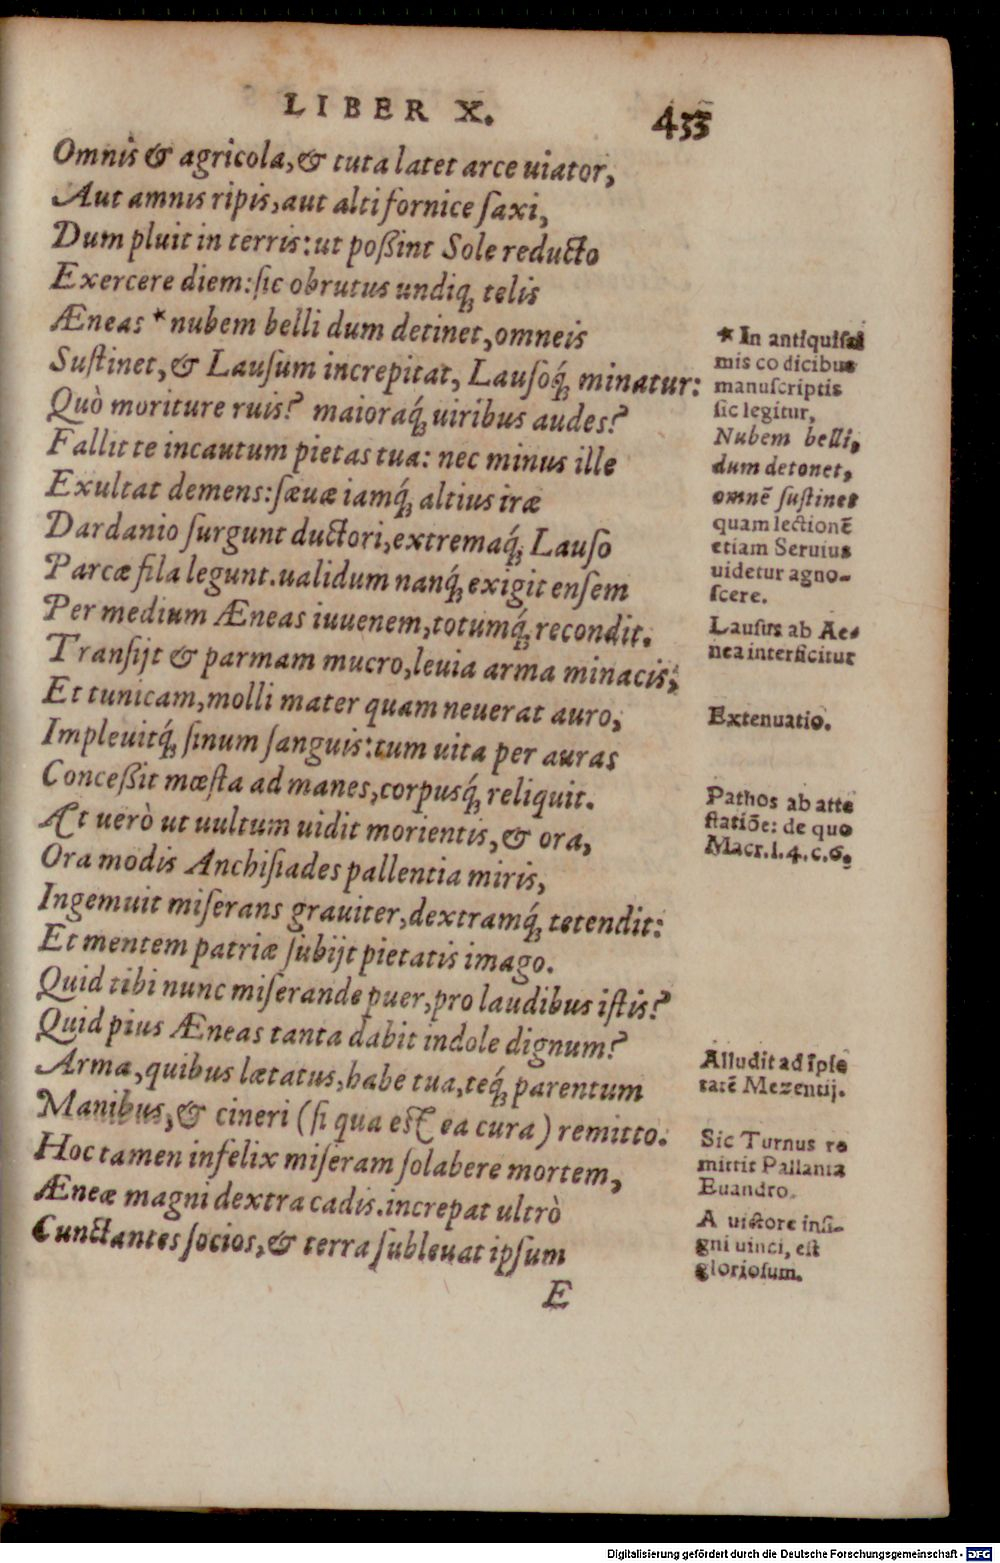 LIBER X. 433
Omnis & agricola, & tuta latet arce uiator,
Aut amnis ripis, aut alti fornice ſaxi,
Dum pluit in terris: ut poßint Sole reducto
Exercere diem: ſic obrutus undiq; telis
Æneas * nubem belli dum detinet, omneis
Suſtinet, & Lauſum increpitat, Lauſoq́; minatur:
Quò moriture ruis? maioraq́; uiribus audes?
Fallit te incautum pietas tua: nec minus ille
Exultat demens: ſæuæ iamq́; altius iræ
Dardanio ſurgunt ductori, extremaq́; Lauſo
Parcæ fila legunt. ualidum nanq́; exigit enſem
Per medium Æneas iuuenem, totumq́; recondit.
Tranſijt & parmam mucro, leuia arma minacis,
Et tunicam, molli mater quam neuerat auro,
Impleuitq́; ſinum ſanguis: tum uita per auras
Conceßit mœſta ad manes, corpusq́; reliquit.
Æt uerò ut uultum uidit morientis, & ora,
Ora modis Anchiſiades pallentia miris,
Ingemuit miſerans grauiter, dextramq́; tetendit:
Et mentem patriæ ſubijt pietatis imago.
Quid tibi nunc miſerande puer, pro laudibus iſtis?
Quid pius Æneas tanta dabit indole dignum?
Arma, quibus lætatus, habe tua, teq́; parentum
Manibus, & cineri (ſi qua eſt ea cura) remitto.
Hoc tamen infelix miſeram ſolabere mortem,
Æneæ magni dextra cadis. increpat ultrò
Cunctantes ſocios, & terra ſubleuat ipſum
E
* In antiquiſsi
mis codicibus
manuſcriptis
ſic legitur,
Nubem belli,
dum detonet,
omnē ſuſtinet
quam lectionē
etiam Seruius
uidetur agno-
ſcere.
Lauſus ab Ae-
nea interficitur
Extenuatio.
Pathos ab atte
ſtatiōe: de quo
Macr. l. 4. c. 6.
Alludit ad īpie
tatē Mezentij.
Sic Turnus re
mittit Pallanta
Euandro.
A uictore inſi-
gni uinci, eſt
glorioſum.
Digitalisierung gefördert durch die Deutsche Forschungsgemeinschaft - DFG